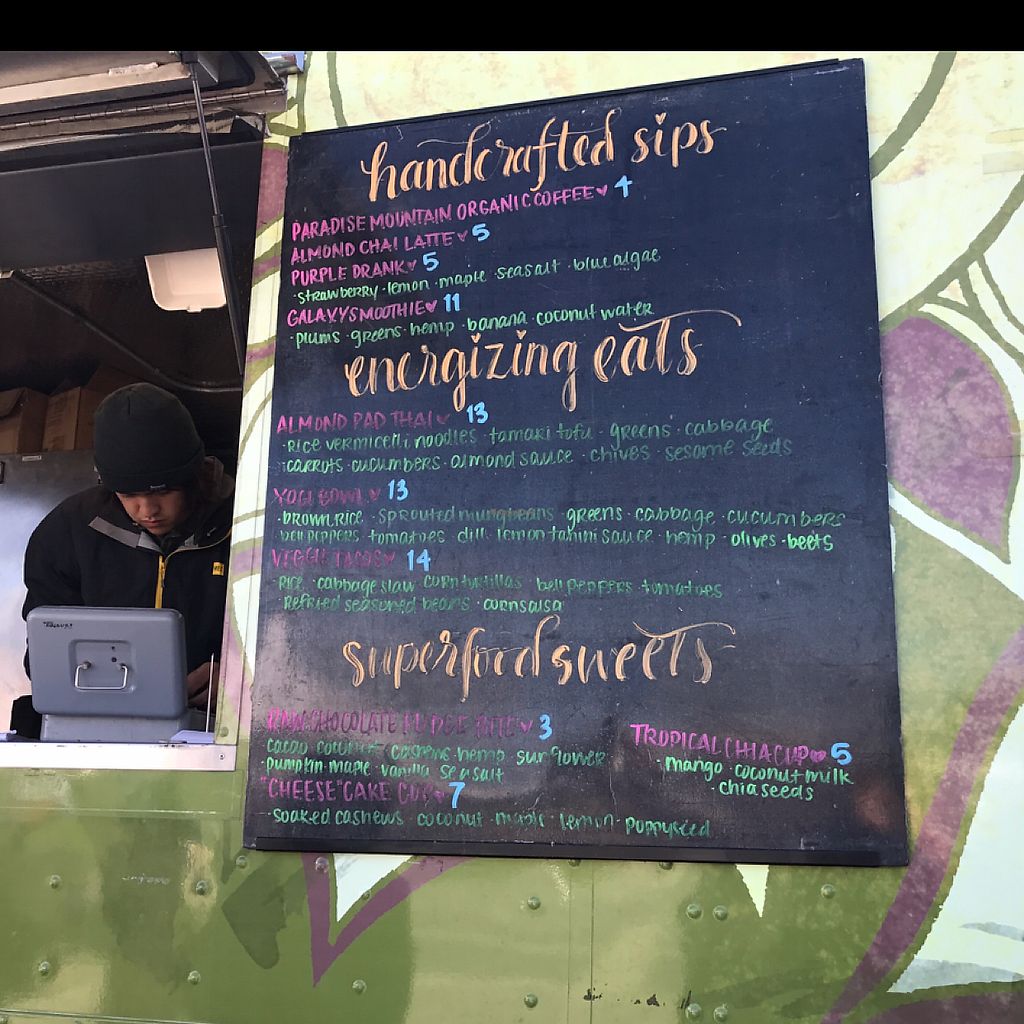 handcrafted sips
PARADISE MOUNTAIN ORGANIC COFFEE♥ 4
ALMOND CHAI LATTE♥ 5
PURPLE DRANK♥ 5
·strawberry·lemon·maple·seasalt·bluealgae
GALAXY SMOOTHIE♥ 11
·plums·greens·hemp·banana·coconut water
energizing eats
ALMOND PAD THAI♥ 13
·rice vermicelli noodles·tamari tofu·greens·cabbage
·carrots·cucumbers·almond sauce·chives·sesame seeds
YOGI BOWL♥ 13
·brown rice·sprouted mungbeans·greens·cabbage·cucumbers
bell peppers·tomatoes·dill·lemon tahini sauce·hemp·olives·beets
VEGGIE TACOS♥ 14
·rice·cabbage slaw·corn tortillas·bell peppers·tomatoes
·refried seasoned beans·corn salsa
superfood sweets
RAW CHOCOLATE FUDGE BITE♥ 3
cacao·coconut·cashews·hemp·sunflower
·pumpkin·maple·vanilla·seasalt
"CHEESE"CAKE CUP♥ 7
·soaked cashews·coconut·maple·lemon·poppyseed
TROPICAL CHIA CUP♥ 5
·mango·coconut milk
·chia seeds